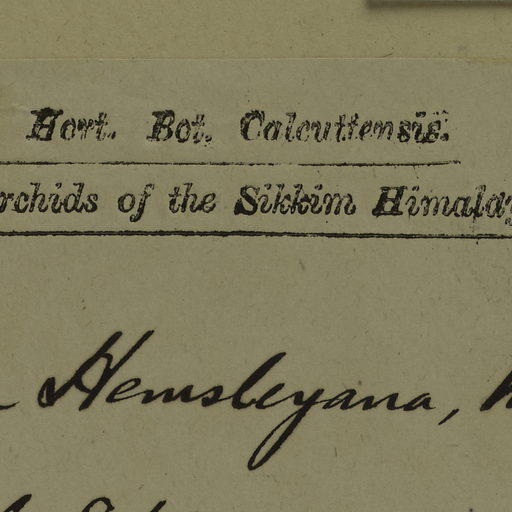 Hort. Bot. Calcuttensis.
rchids of the Sikkim Himalay
Hemsleyana,